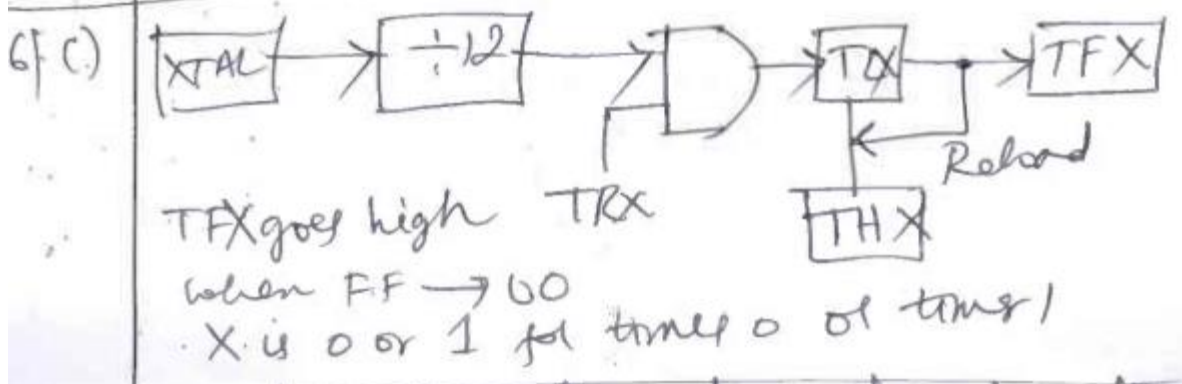 6f C)
XTAL ÷12 TLX TFX
Reload
TRX THX
TFX goes high
when FF → 00
X is 0 or 1 for timer 0 or timer 1